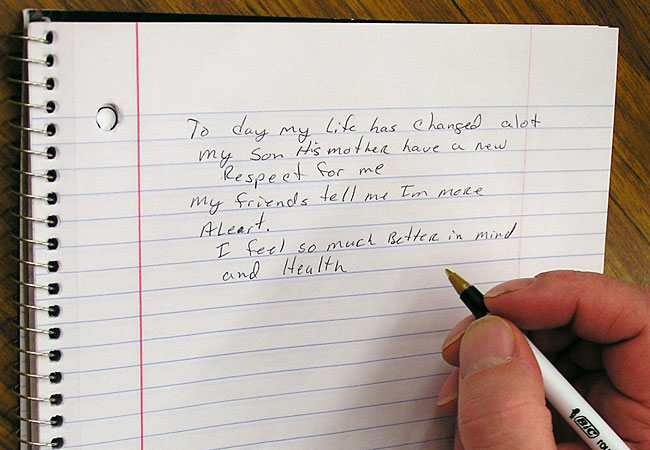 To day my Life has changed alot
my Son His mother have a new
Respect for me
my friends tell me Im more
ALeart.
I feel so much Better in mind
and Health
BIC